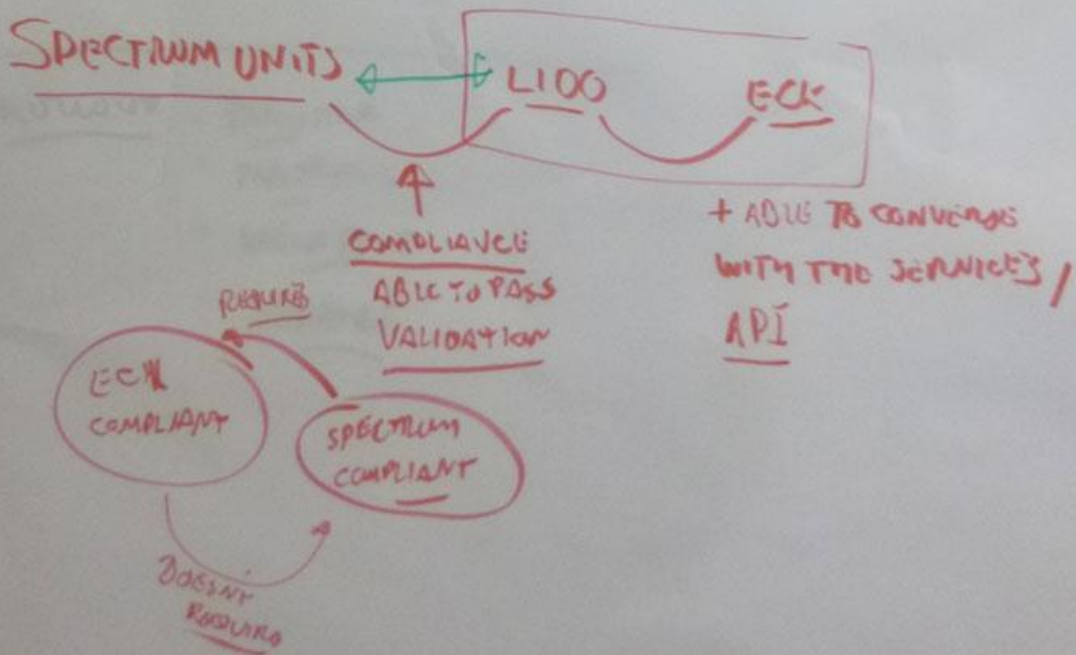 SPECTRUM UNITS
LIDO
ECK
COMPLIANCE
ABLE TO PASS
VALIDATION
+ ABLE TO CONVERGE
WITH THE SERVICES /
API
REQUIRES
ECK
COMPLIANT
SPECTRUM
COMPLIANT
DOESNT
REQUIRE